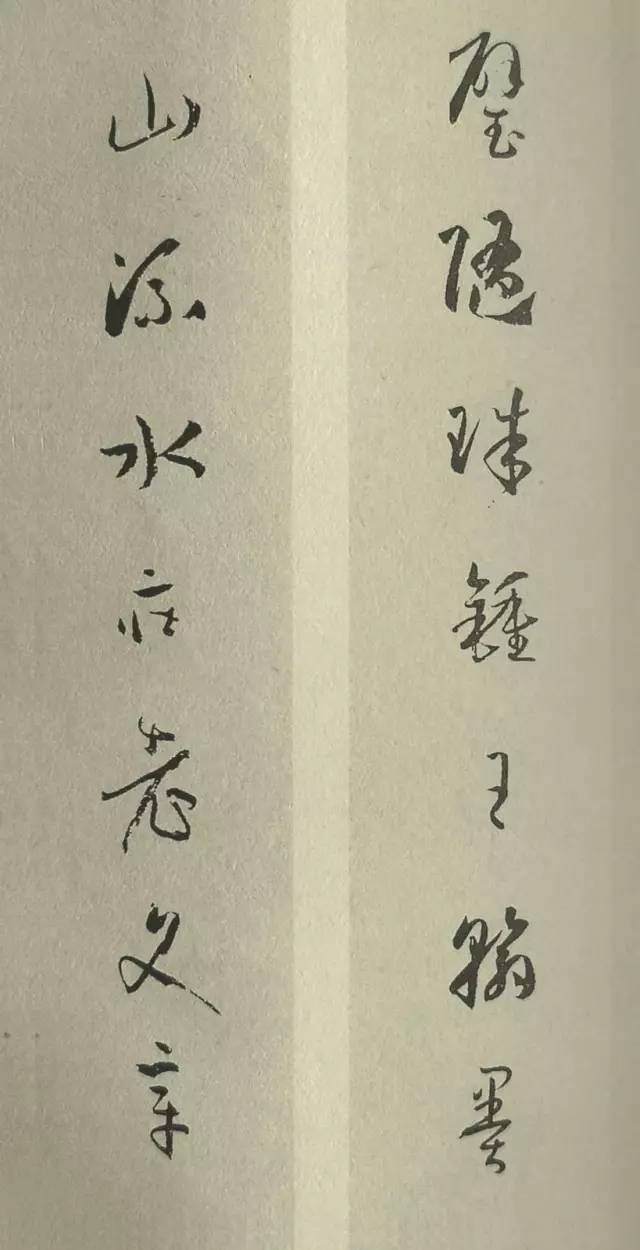 璧隨珠鍾王翰墨
山流水莊老文章